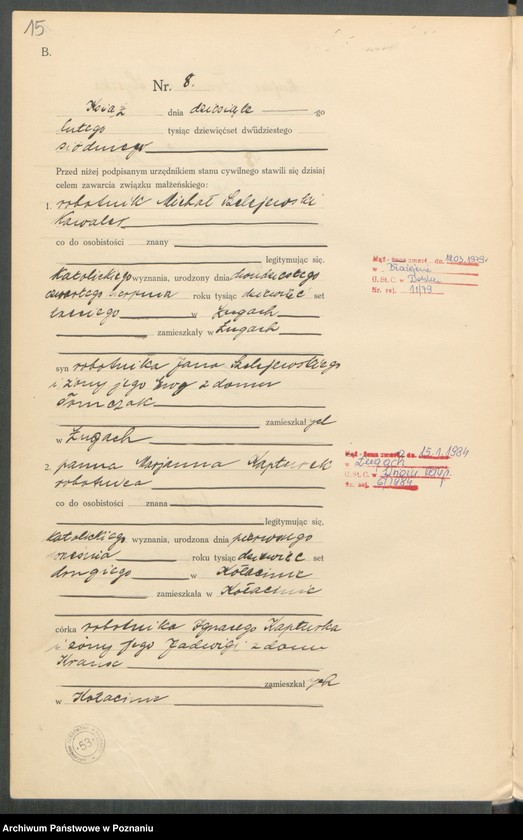 15
B.
Nr. 8.
Książ dnia dziesiąte go
lutego tysiąc dziewięćset dwudziestego
siódmego
Przed niżej podpisanym urzędnikiem stanu cywilnego stawili się dzisiaj
celem zawarcia związku małżeńskiego:
1. robotnik Michał Szlejewski
Kawaler
co do osobistości znany
legitymując się,
Katolickiego wyznania, urodzony dnia dwudziestego
czwartego sierpnia roku tysiąc dziewięć set
w Ługach
zamieszkały w Ługach
syn robotnika Jana Szlejewskiego
i żony jego Ewy z domu
Tomczak
zamieszkał
w Ługach
2. panna Marjanna Kapturek
robotnica
co do osobistości znana
legitymując się,
katolickiego wyznania, urodzona dnia pierwszego
września roku tysiąc dziewięć set
drugiego w
zamieszkała w
córka robotnika Ignacego Kapturka
i żony jego Jadwigi z domu
zamieszkał
w
zmarł dn. 18.03.1979r
w
U.S.C. w
Nr. rej. 11/79
dn. 15.1.1984
w Ługach
U.S.C. w
Nr. rej. 6/1984
53
Archiwum Państwowe w Poznaniu